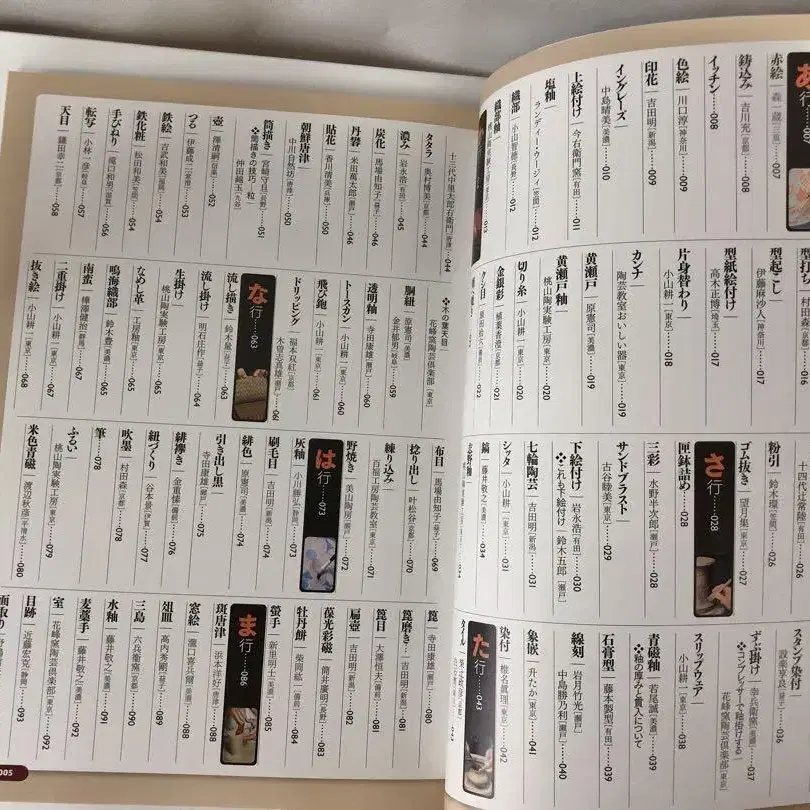 あ行
赤絵
鋳込み 吉川充[京都]……008
イッチン……008
色絵 川口淳[神奈川]……009
印花 吉田明[新潟]……009
イングレーズ
中島晴美[美濃]……010
上絵付け 今右衛門窯[有田]……011
塩釉
ランディー・ウージィ[笠間]……012
織部 小山智徳[長野]……012
織部釉
型起こし
伊藤麻沙人[神奈川]……016
型紙絵付け
高木正博[埼玉]……017
片身替わり
小山耕一[東京]……018
カンナ
陶芸教室おいしい器[東京]……019
黄瀬戸 原憲司[美濃]……019
黄瀬戸釉
桃山陶実験工房[東京]……020
切り糸 小山耕一[東京]……020
金銀彩 植葉香澄[京都]……021
クシ目
粉引 鈴木環[笠間]……026
ゴム抜き 望月集[東京]……027
匣鉢詰め……028
さ行……028
三彩 水野半次郎[瀬戸]……028
サンドブラスト
古谷睦美[東京]……029
下絵付け 岩永浩[有田]……030
❖これも下絵付け 鈴木五郎[瀬戸]
七輪陶芸 吉田明[新潟]……031
シッタ 小山耕一[東京]……031
鎬 藤井敬之[美濃]……034
スタンプ染付
ずぶ掛け 幸兵衛窯[美濃]……037
❖コンプレッサーで釉掛けする
花峰窯陶芸倶楽部[東京]
スリップウェア
小山耕一[東京]……038
青磁釉 若尾誠[美濃]……039
❖釉の厚みと貫入について
石膏型 藤本製型[有田]……039
線刻 岩月竹光[瀬戸]
中島勝乃利[瀬戸]……040
象嵌 升たか[東京]……041
染付 椎名眞理[東京]……042
た行……043
タイル
十三代中里太郎右衛門[唐津]……044
タタラ 奥村博美[京都]……044
濃み 岩永浩[有田]……045
炭化 馬場由知子[益子]……046
丹礬 米田萬太郎[瀬戸]……046
貼花 香川清美[兵庫]……050
朝鮮唐津
中川自然坊[唐津]……050
筒描き 宮崎守旦[長野]……051
❖筒描きの技巧・粒
仲田錦玉[九谷]
壺 澤清嗣[信楽]……052
つる 伊藤成二[常滑]……053
鉄絵 吉武和美[福岡]……054
鉄化粧 松田和美[笠間]……054
手びねり 滝口和明[滋賀]……056
転写 小林一彦[岐阜]……057
天目 鎌田幸二[京都]……058
❖木の葉天目
花峰窯陶芸倶楽部[東京]
胴紐 原憲司[美濃]……059
金井郁男[岐阜]
透明釉 寺田康雄[瀬戸]……060
トースカン 小山耕一[東京]……060
飛び鉋 小山耕一[東京]……061
ドリッピング 福本双紅[京都]
木曽志真雄[瀬戸]……061
な行……063
流し描き 鈴木量[益子]
流し掛け 明石庄作[益子]……064
生掛け
桃山陶実験工房[東京]……065
なめし革 工房釉[東京]……065
鳴海織部 鈴木豊[美濃]……065
南蛮 樺澤健治[新潟]……067
二重掛け 小山耕一[東京]……067
抜き絵 小山耕一[東京]……068
布目 馬場由知子[益子]……069
捻り出し 叶松谷[京都]……070
練り込み
百福工房陶芸教室[東京]……071
野焼き 美山陶房[瀬戸]……072
は行……073
灰釉 小川勝弘[静岡]……073
刷毛目 吉田明[新潟]……074
緋色 原憲司[美濃]……074
引き出し黒
寺田康雄[瀬戸]……075
緋襷き 金重愫[備前]……076
紐づくり 谷本景[伊賀]……077
吹墨 村田森[京都]……078
筆……078
ふるい
桃山陶実験工房[東京]……079
米色青磁 渡辺秋彦[平清水]……080
箆 寺田康雄[瀬戸]……080
箆磨き 吉田明[新潟]……081
箆目 大澤恒夫[備前]……081
扁壺 吉田明[新潟]……082
葆光彩磁 筒井廣明[長野]……083
牡丹餅 柴岡紘一[備前]……084
蛍手 新里明士[美濃]……085
ま行……086
斑唐津 浜本洋好[唐津]……088
窓絵 瀧口喜兵爾[美濃]……088
俎皿 高内秀剛[益子]……090
三島 六兵衛窯[京都]……090
水釉 藤井敬之[美濃]……091
麦藁手 藤井敬之[美濃]……092
室 花峰窯陶芸倶楽部[東京]……092
目跡 近藤宏克[静岡]……093
面取り
005